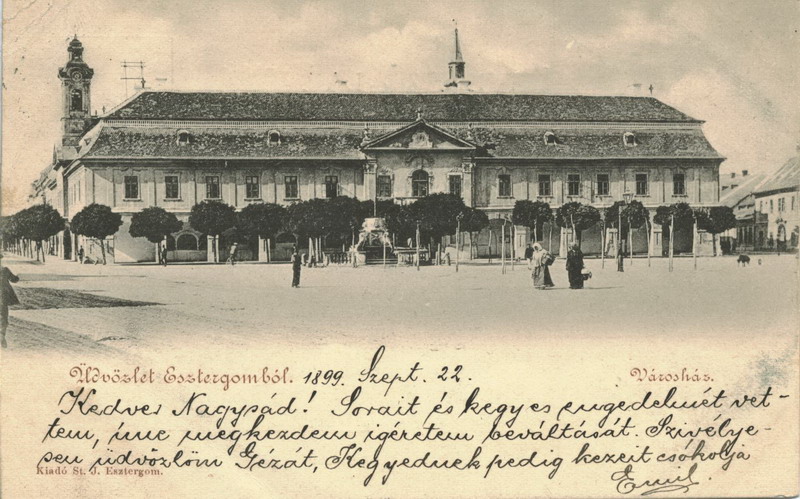 Üdvözlet Esztergomból. 1899. Szept. 22. Városház.
Kedves Nagysád! Sorait és kegyes engedelmét vet-
tem, íme megkezdem igéretem beváltását. Szívélye-
sen üdvözlöm Gézát, Kegyednek pedig kezeit csókolja
Kiadó St. J. Esztergom.
Emil